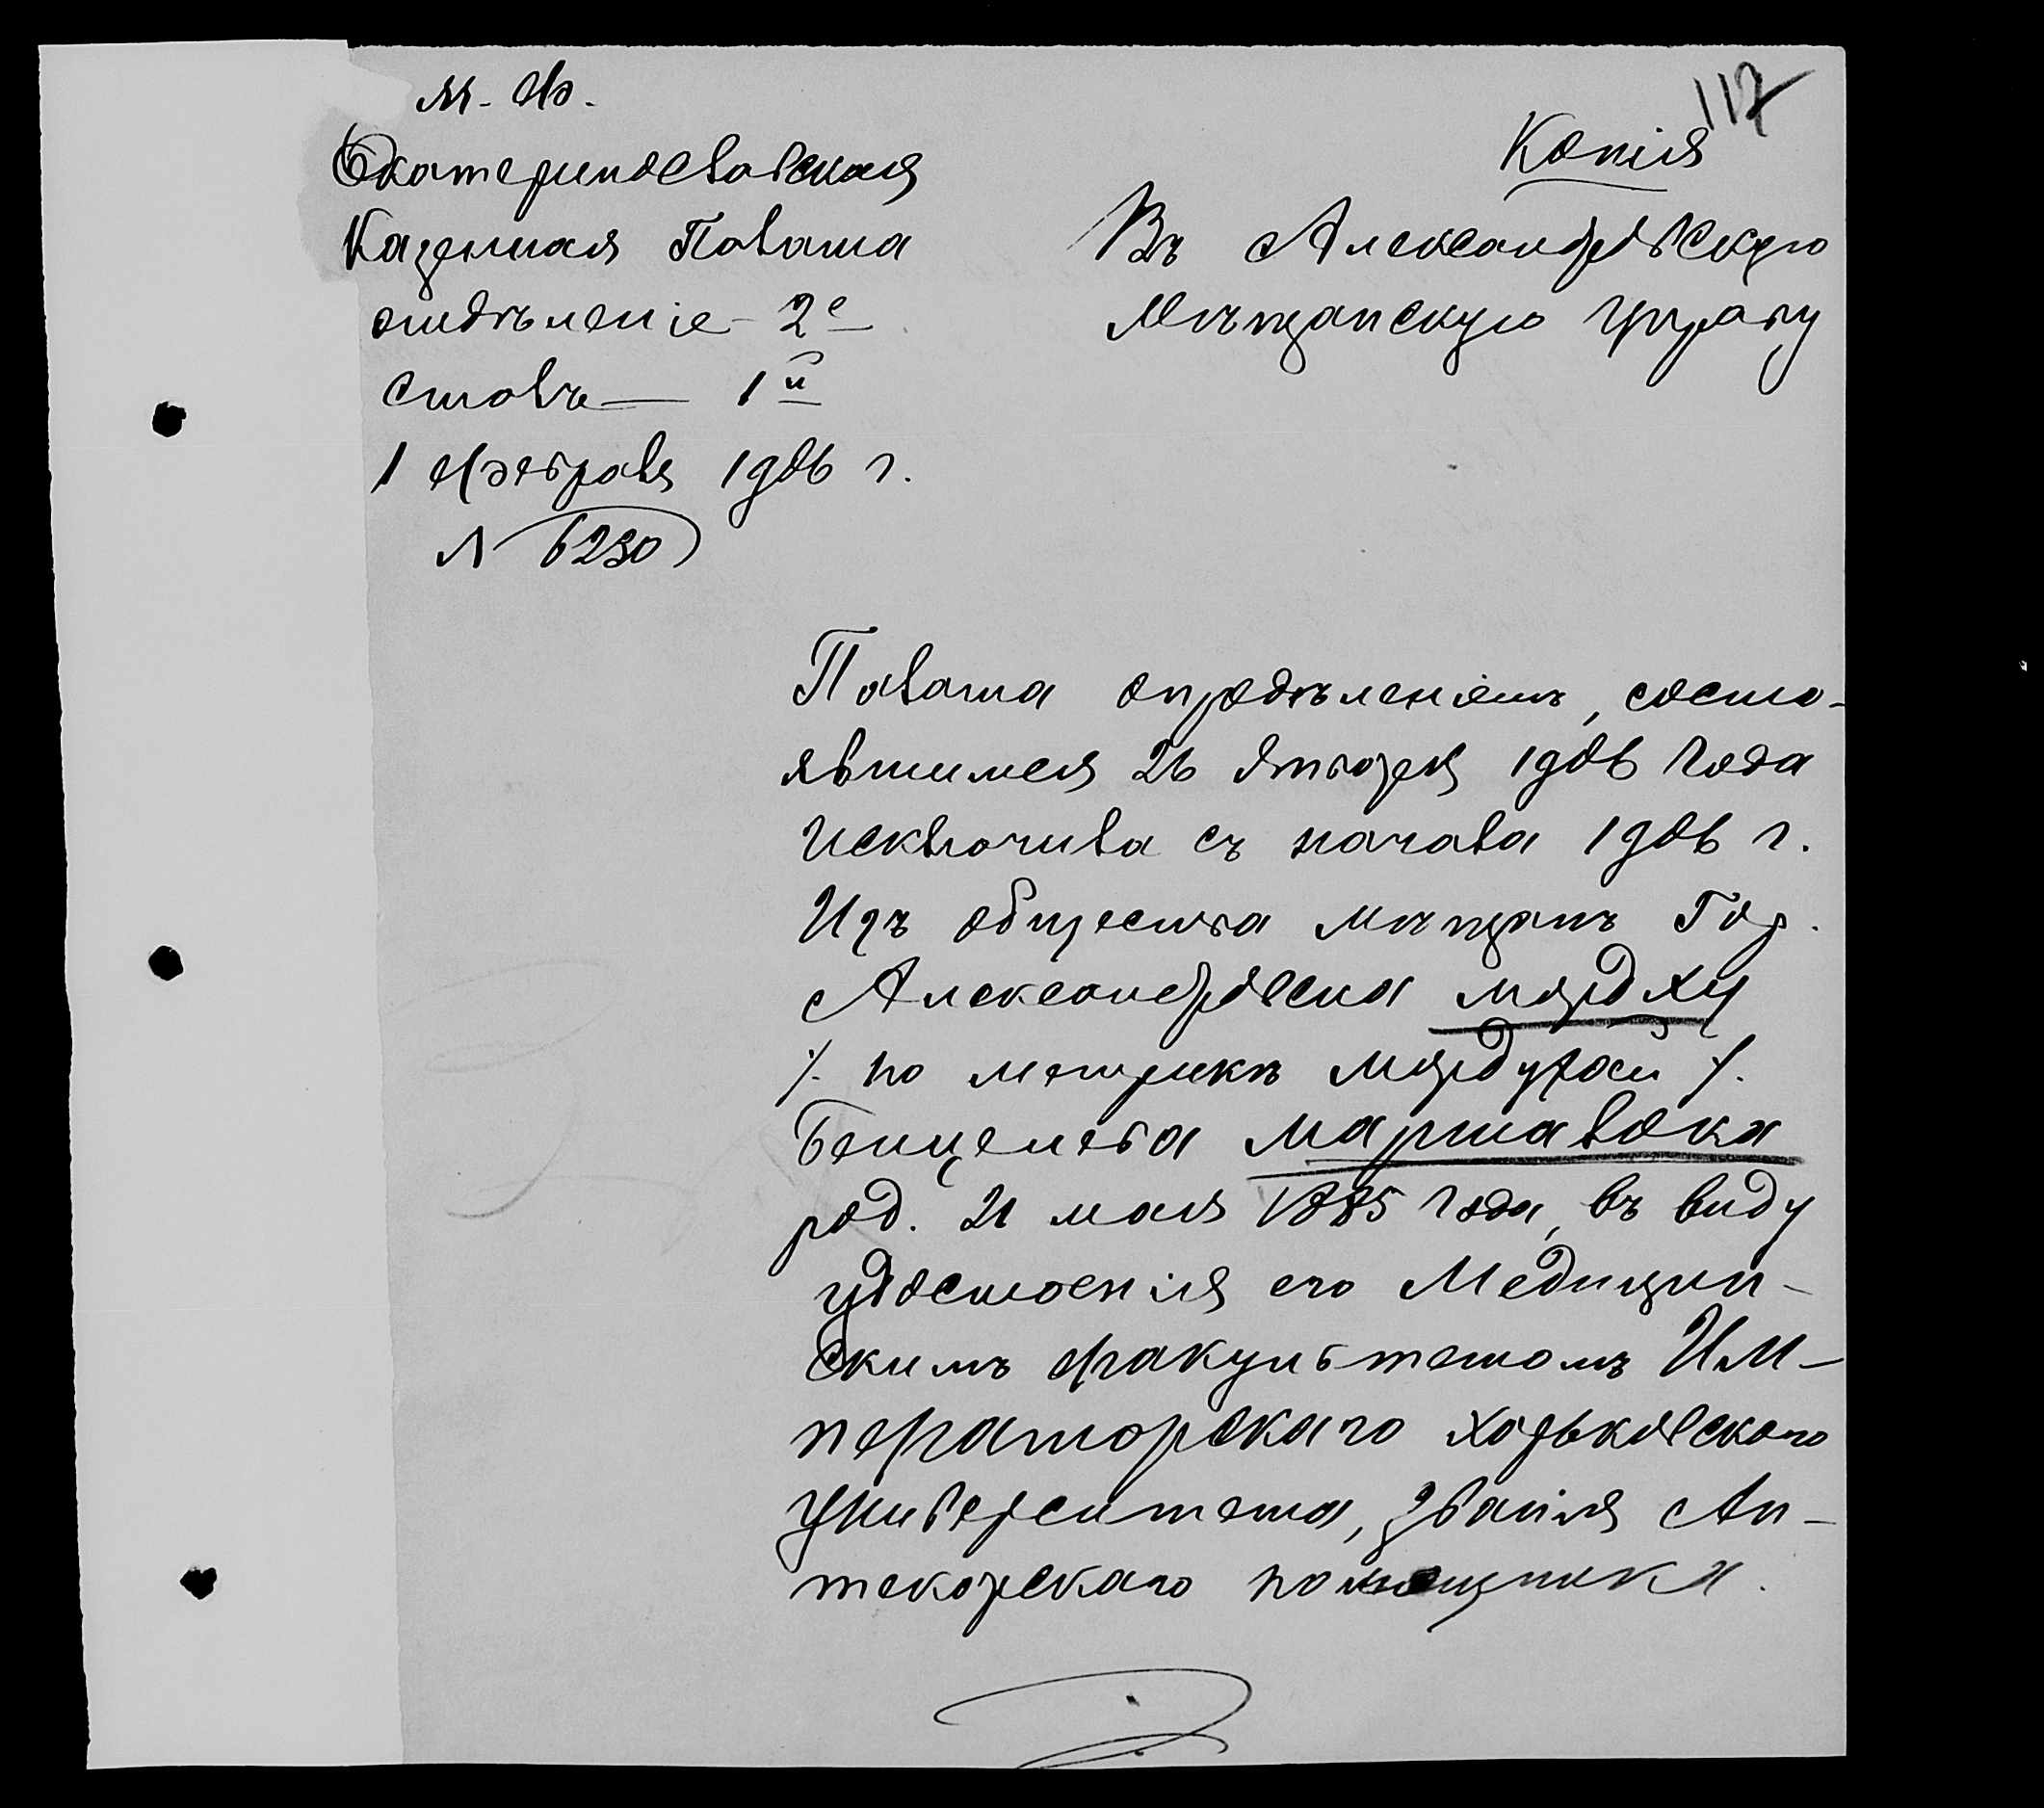 М. Ф.
117
Екатеринославская
Копія
Казенная Палата
Въ Александровскую
отдѣленіе 2е
Мѣщанскую Управу
столъ — 1й
1 февраля 1906 г.
№ 6230
Палата опредѣленіемъ, состо-
явшимся 26 января 1906 года
исключила съ начала 1906 г.
изъ общества мѣщанъ гор.
Александровска Мордху
/. по метрикѣ Мордухай /.
Бенцелева Маршалока
род. 21 мая 1885 года, въ виду
удостоенія его Медицин-
скимъ факультетомъ Им-
ператорскаго Харьковскаго
Университета, званія Ап-
текарскаго помощника.